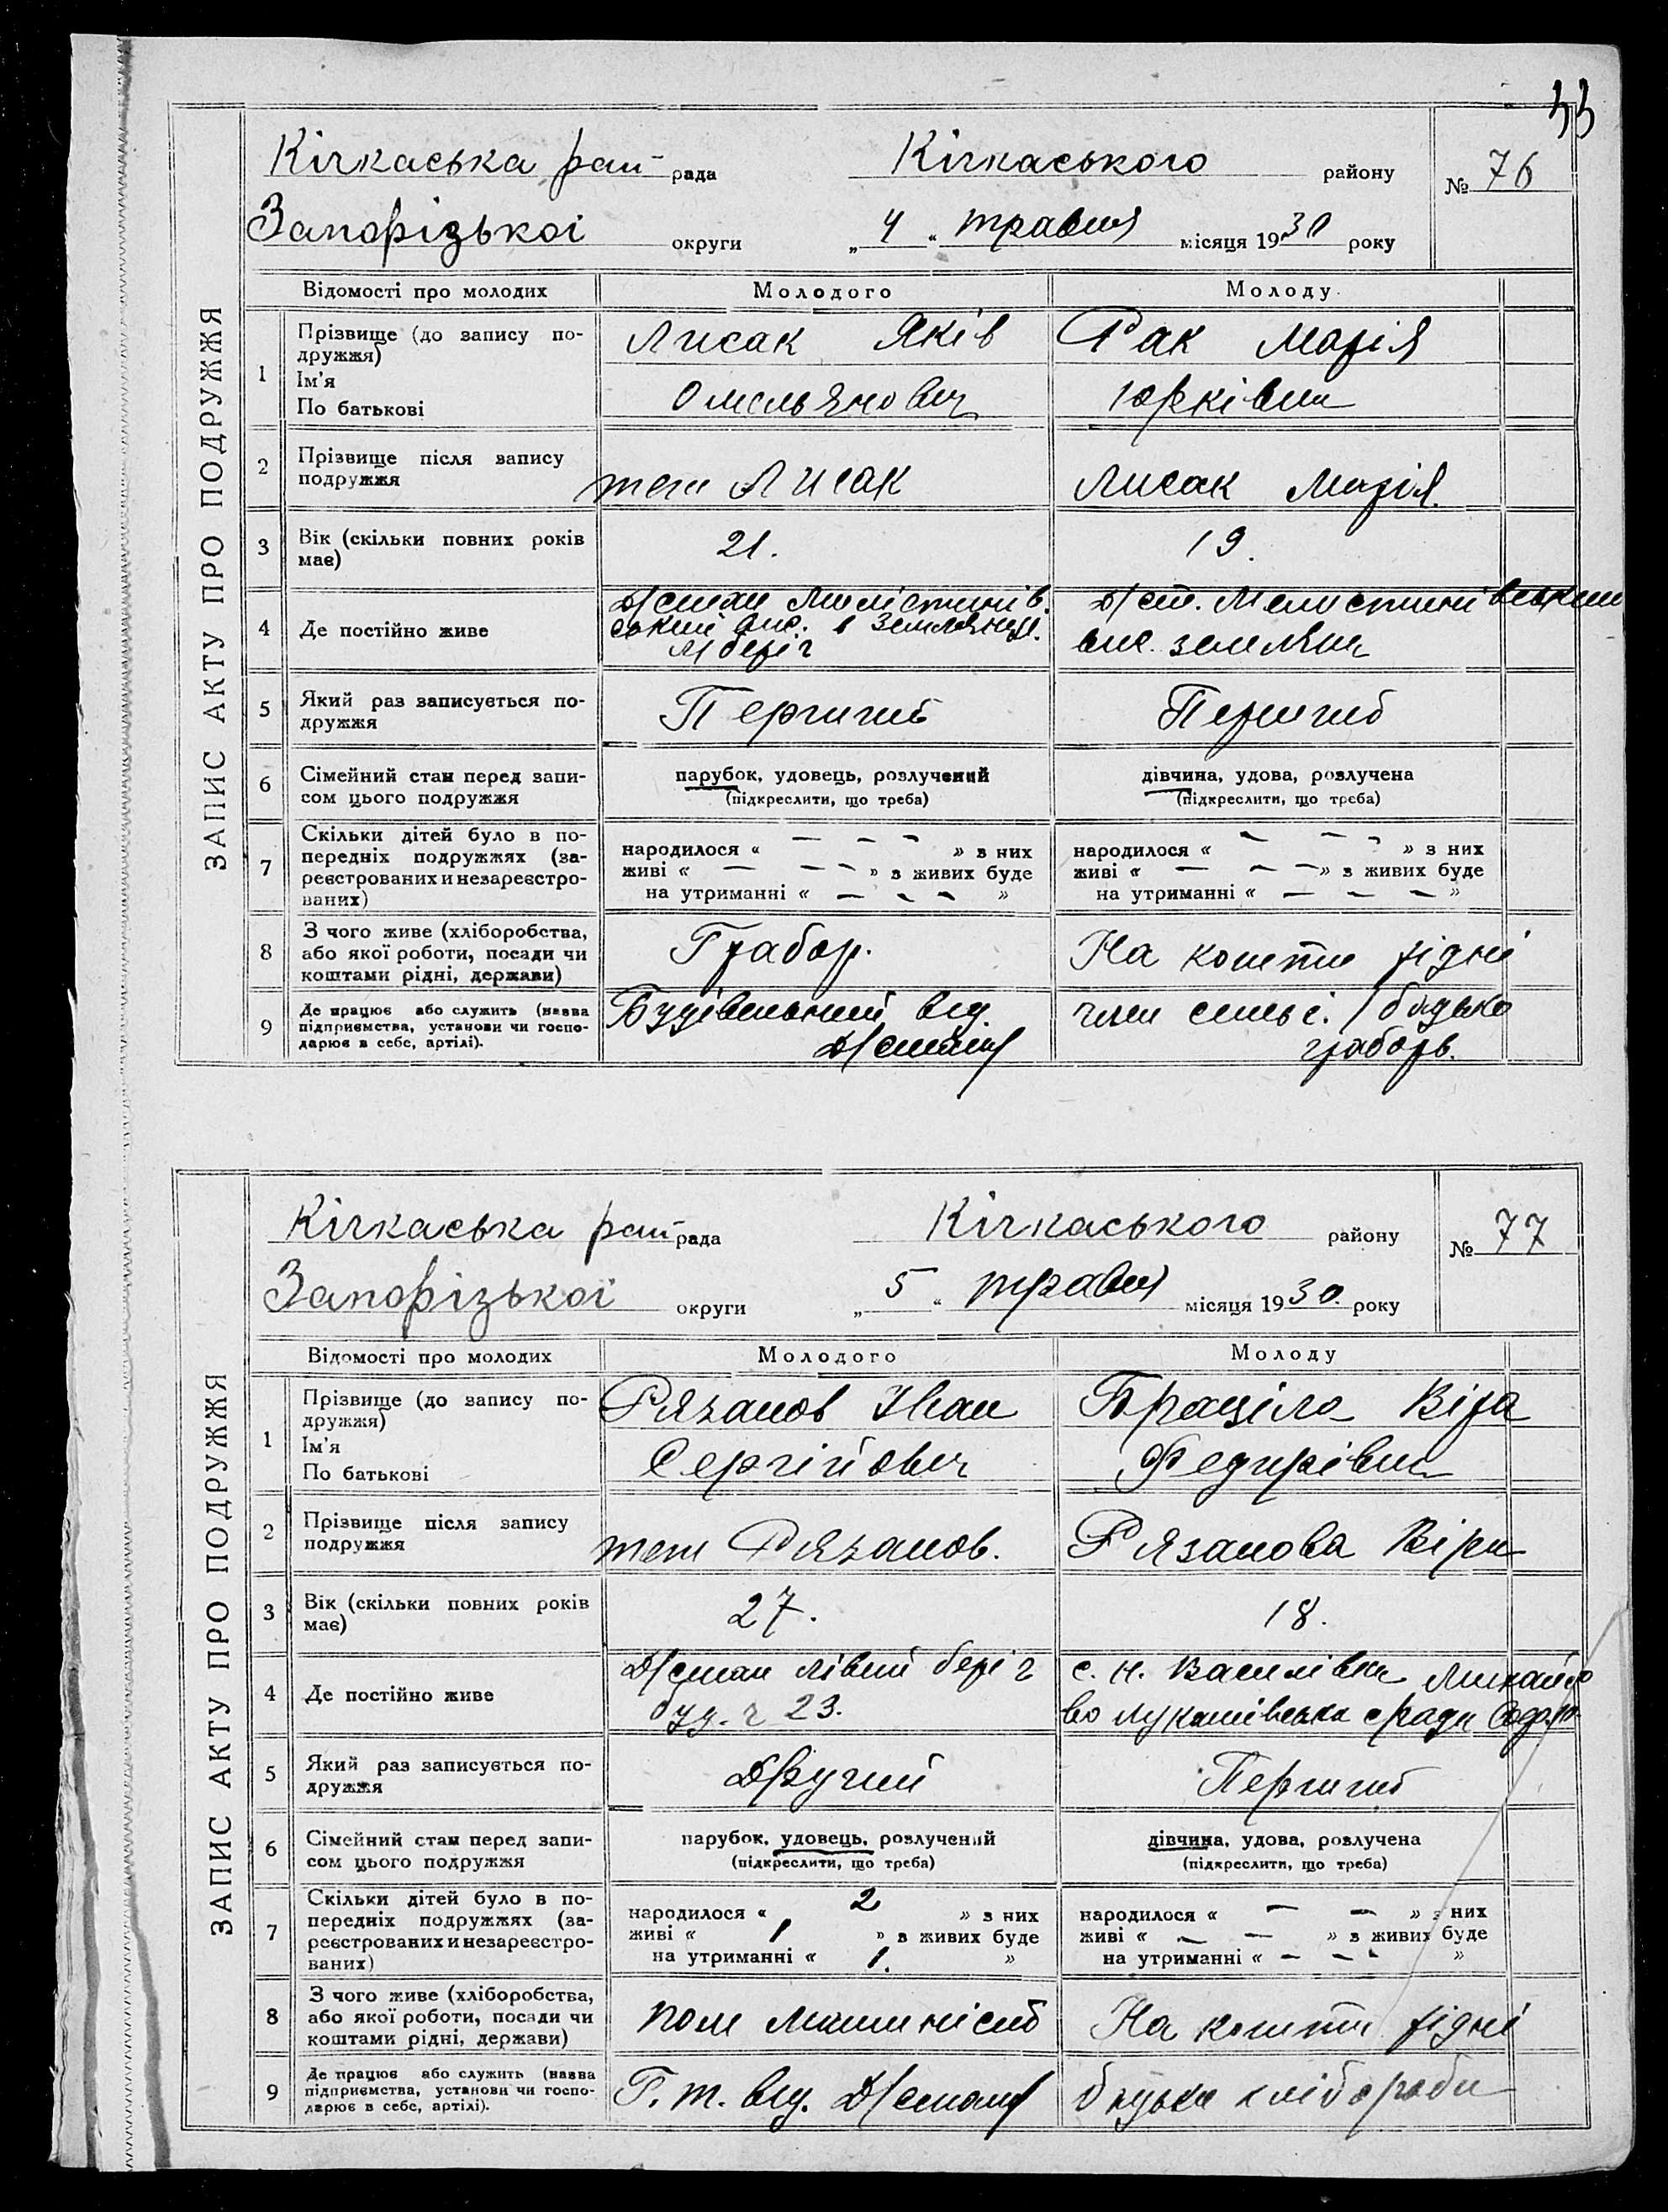 33
ЗАПИС АКТУ ПРО ПОДРУЖЖЯ
Кічкаська рай рада Кічкаського району № 76
Запорізької округи „ 4 “ травня місяця 1930 року
Відомості про молодих Молодого Молоду
1 Прізвище (до запису подружжя) Лисак Яків Рак Марія
Ім'я
По батькові Омельянович Юрківна
2 Прізвище після запису подружжя теж Лисак Лисак Марія
3 Вік (скільки повних років має) 21. 19.
4 Де постійно живе Д/стан
ський вис. в землянці. Д/ст.
л берег вис. землянк
5 Який раз записується подружжя Перший Перший
6 Сімейний стан перед записом цього подружжя парубок, удовець, розлучений дівчина, удова, розлучена
(підкреслити, що треба) (підкреслити, що треба)
7 Скільки дітей було в попередніх подружжях (зареєстрованих и незареєстрованих) народилося « — — — » з них народилося « — — — » з них
живі « — — — » з живих буде живі « — — — » з живих буде
на утриманні « — — — » на утриманні « — — — »
8 З чого живе (хліборобства, або якої роботи, посади чи коштами рідні, держави) Грабар. На кошти рідні
9 Де працює або служить (назва підприємства, установи чи господарює в себе, артілі). Будівельний від. член сем'ї. / батько
Д/стану грабарь.
ЗАПИС АКТУ ПРО ПОДРУЖЖЯ
Кічкаська рай рада Кічкаського району № 77
Запорізької округи „ 5 “ травня місяця 1930. року
Відомості про молодих Молодого Молоду
1 Прізвище (до запису подружжя) Рязанов Іван Браціло Віра
Ім'я
По батькові Сергійович Федирівна
2 Прізвище після запису подружжя теж Рязанов. Рязанова Віра
3 Вік (скільки повних років має) 27. 18.
4 Де постійно живе Д/стан лівий беріг с. н. Василівка Михайло
буд. ч 23. во Лукашівська с/рада
5 Який раз записується подружжя Другий Перший
6 Сімейний стан перед записом цього подружжя парубок, удовець, розлучений дівчина, удова, розлучена
(підкреслити, що треба) (підкреслити, що треба)
7 Скільки дітей було в попередніх подружжях (зареєстрованих и незареєстрованих) народилося « 2 » з них народилося « — — » з них
живі « 1 » з живих буде живі « — — » з живих буде
на утриманні « 1. » на утриманні « — — — »
8 З чого живе (хліборобства, або якої роботи, посади чи коштами рідні, держави) пом машиніста На кошти рідні
9 Де працює або служить (назва підприємства, установи чи господарює в себе, артілі). Г. т. від. Д/стану батька хлібороба